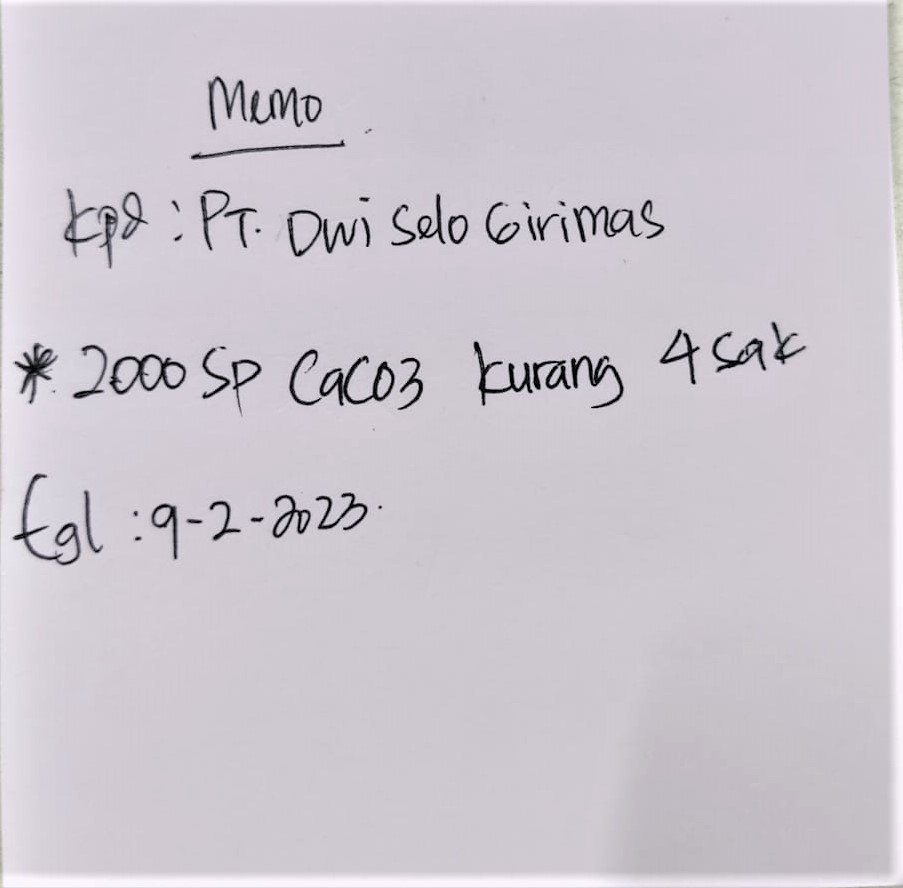 Memo
Kpd : PT. Dwi Selo Girimas
* 2000 SP CaCO3 kurang 4 sak
tgl : 9-2-2023.